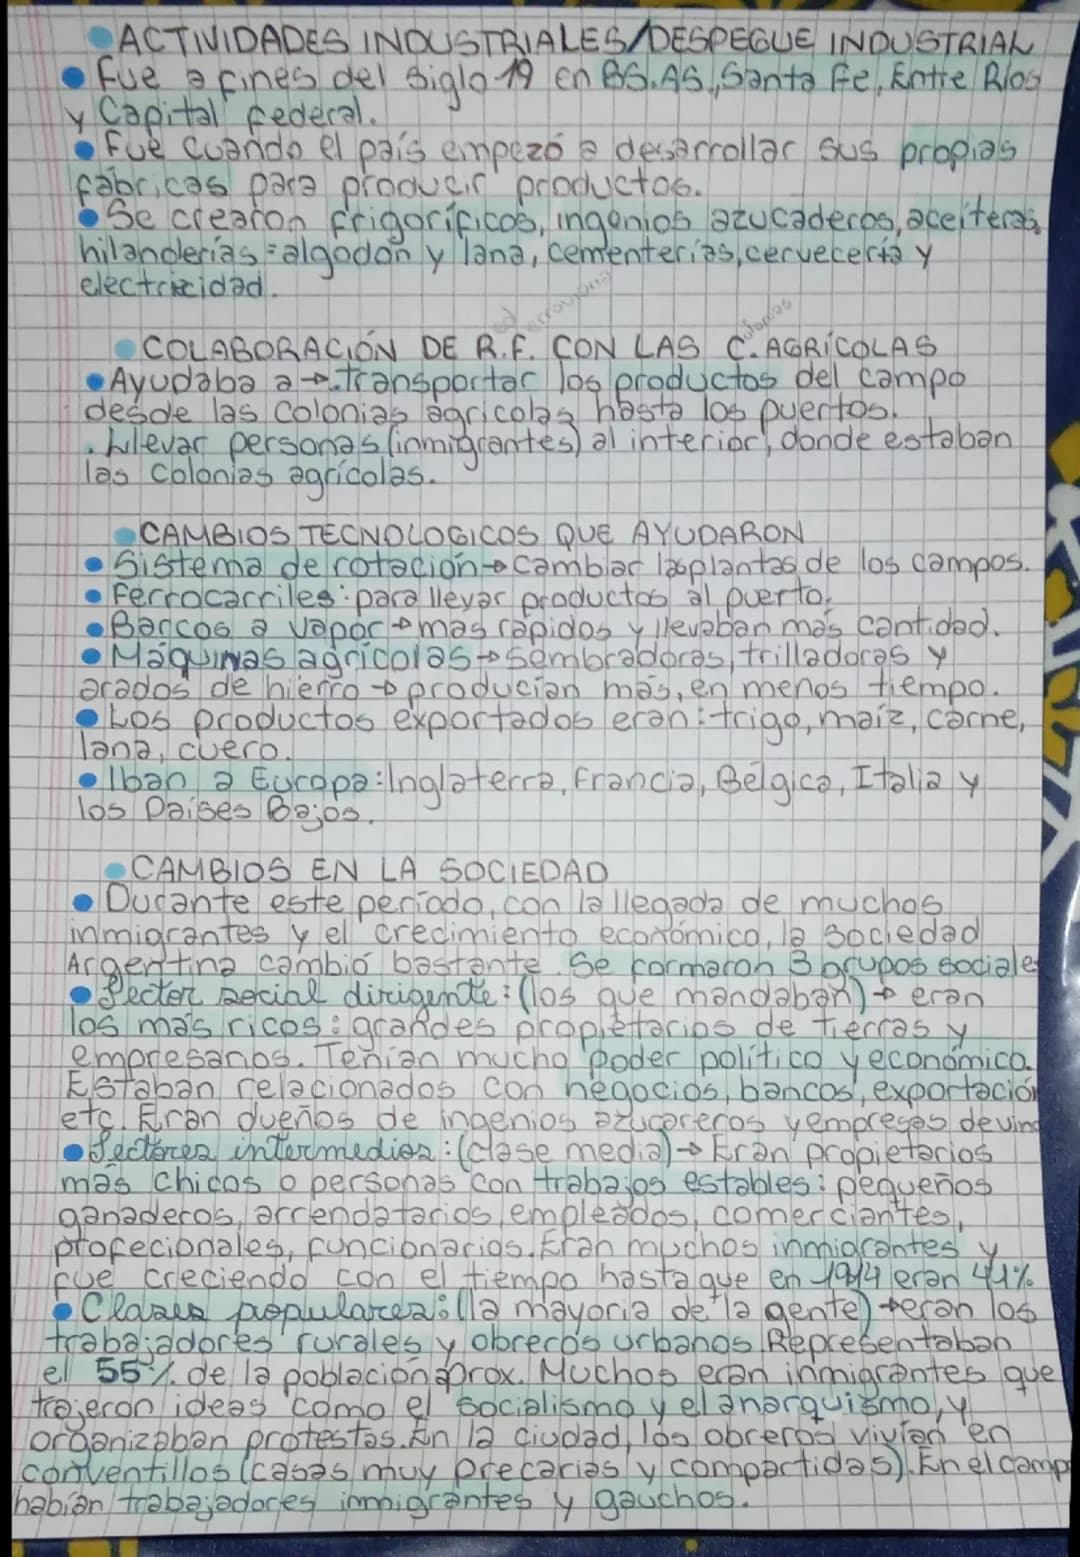 ACTIVIDADES INDUSTRIALES/DESPEGUE INDUSTRIAL
• Fue a fines del siglo 19 en BS.AS., Santa Fe, Entre Ríos
y Capital Federal.
• Fue cuando el país empezó a desarrollar sus propias
fábricas para producir productos.
• Se crearon frigoríficos, ingenios azucaderos, aceiteras,
hilanderías = algodón y lana, cementerias, cervecería y
electricidad.
ferroviaria colonias
• COLABORACIÓN DE R.F. CON LAS C. AGRÍCOLAS
• Ayudaba a → transportar los productos del campo
desde las colonias agricolas hasta los puertos.
. Llevar personas (inmigrantes) al interior, donde estaban
las colonias agrícolas.
• CAMBIOS TECNOLOGICOS QUE AYUDARON
• Sistema de rotación → cambiar las plantas de los campos.
• Ferrocarriles: para llevar productos al puerto.
• Barcos a vapor → mas rápidos y llevaban más cantidad.
• Máquinas agrícolas → sembradoras, trilladoras y
arados de hierro → producían más, en menos tiempo.
• Los productos exportados eran: trigo, maíz, carne,
lana, cuero.
• Iban a Europa: Inglaterra, Francia, Bélgica, Italia y
los Países Bajos.
• CAMBIOS EN LA SOCIEDAD
• Durante este período, con la llegada de muchos
inmigrantes y el crecimiento económico, la sociedad
Argentina cambió bastante. Se formaron 3 grupos sociale
• Sector social dirigente: (los que mandaban) → eran
los más ricos: grandes propietarios de tierras y
empresarios. Tenían mucho poder político y económico.
Estaban relacionados con negocios, bancos, exportación
etc. Eran dueños de ingenios azucareros y empresas de vino
• Sectores intermedios: (clase media) → Eran propietarios
más chicos o personas con trabajos estables: pequeños
ganaderos, arrendatarios, empleados, comerciantes,
profecionales, funcionarios. Eran muchos inmigrantes y
fue creciendo con el tiempo hasta que en 1914 eran 41%
• Clases populares: (la mayoria de la gente) → eran los
trabajadores rurales y obreros urbanos. Representaban
el 55% de la población aprox. Muchos eran inmigrantes que
trajeron ideas como el socialismo y el anarquismo, y
organizaban protestas. En la ciudad, los obreros vivían en
conventillos (casas muy precarias y compartidas). En el camp
habían trabajadores inmigrantes y gauchos.